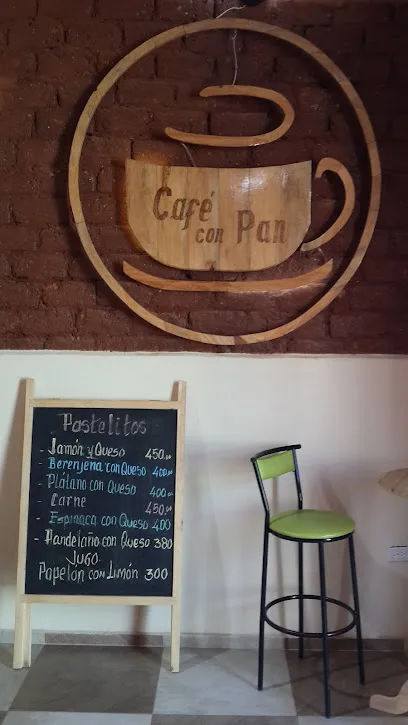 Café
con Pan
Pastelitos
- Jamón y Queso 450.00
- Berenjena con Queso 400.00
- Plátano con Queso 400.00
- Carne 450.00
- Espinaca con Queso 400
- Pandelaño con Queso 380
Jugo
Papelón con Limón 300